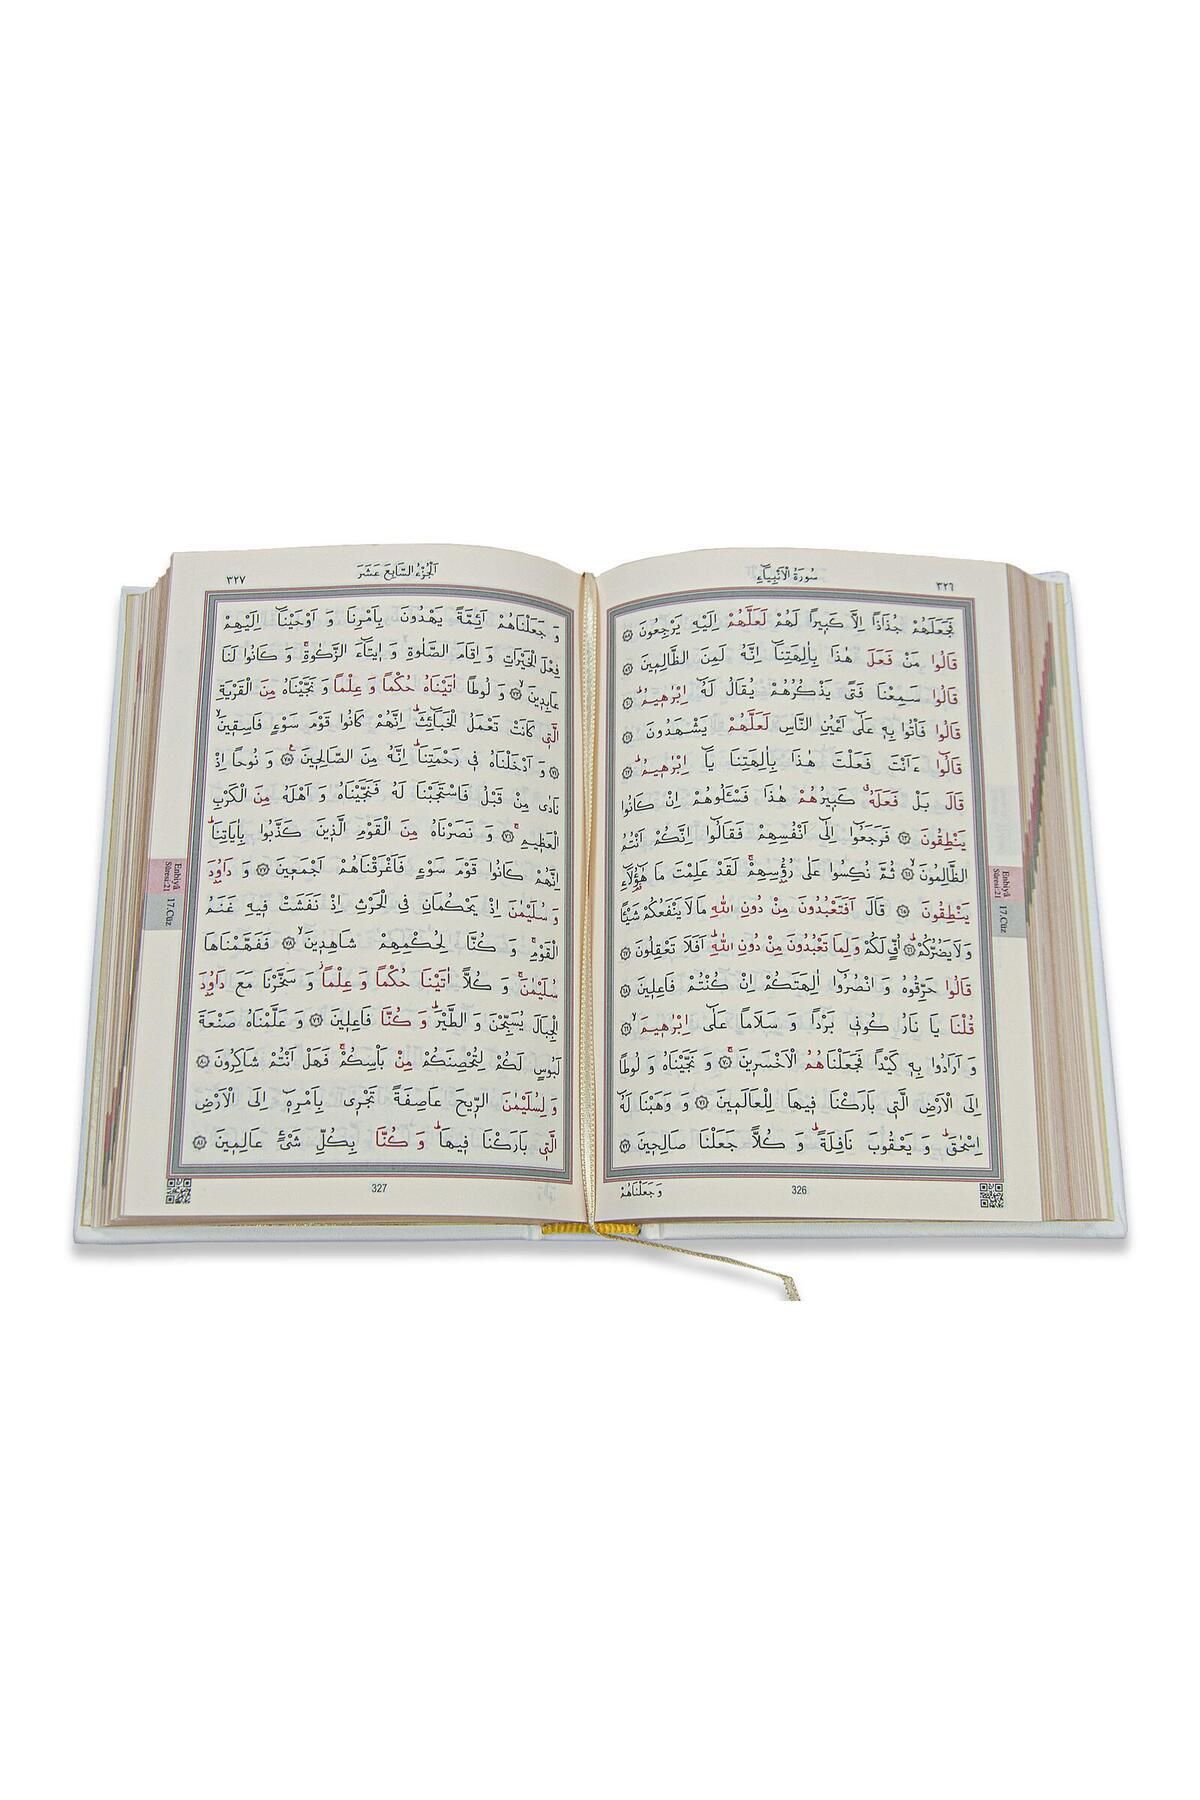 سُورَةُ الْاَنْبِيَاءِ
٣٢٦
فَجَعَلَهُمْ جُذَاذًا اِلَّا كَب۪يرًا لَهُمْ لَعَلَّهُمْ اِلَيْهِ يَرْجِعُونَ ﴿٥٨﴾
قَالُوا مَنْ فَعَلَ هٰذَا بِاٰلِهَتِنَٓا اِنَّهُ لَمِنَ الظَّالِم۪ينَ ﴿٥٩﴾
قَالُوا سَمِعْنَا فَتًى يَذْكُرُهُمْ يُقَالُ لَهُٓ اِبْرٰه۪يمُۜ ﴿٦٠﴾
قَالُوا فَأْتُوا بِه۪ عَلٰٓى اَعْيُنِ النَّاسِ لَعَلَّهُمْ يَشْهَدُونَ ﴿٦١﴾
قَالُٓوا ءَاَنْتَ فَعَلْتَ هٰذَا بِاٰلِهَتِنَا يَٓا اِبْرٰه۪يمُۜ ﴿٦٢﴾
قَالَ بَلْ فَعَلَهُۗ كَب۪يرُهُمْ هٰذَا فَسْـَٔلُوهُمْ اِنْ كَانُوا
يَنْطِقُونَ ﴿٦٣﴾ فَرَجَعُٓوا اِلٰٓى اَنْفُسِهِمْ فَقَالُٓوا اِنَّكُمْ اَنْتُمُ
الظَّالِمُونَۙ ﴿٦٤﴾ ثُمَّ نُكِسُوا عَلٰى رُؤُ۫سِهِمْۚ لَقَدْ عَلِمْتَ مَا هٰٓؤُ۬لَٓاءِ
يَنْطِقُونَ ﴿٦٥﴾ قَالَ اَفَتَعْبُدُونَ مِنْ دُونِ اللّٰهِ مَا لَا يَنْفَعُكُمْ شَيْـًٔا
وَلَا يَضُرُّكُمْۜ ﴿٦٦﴾ اُفٍّ لَكُمْ وَلِمَا تَعْبُدُونَ مِنْ دُونِ اللّٰهِۜ اَفَلَا تَعْقِلُونَ ﴿٦٧﴾
قَالُوا حَرِّقُوهُ وَ انْصُرُٓوا اٰلِهَتَكُمْ اِنْ كُنْتُمْ فَاعِل۪ينَ ﴿٦٨﴾
قُلْنَا يَا نَارُ كُون۪ي بَرْدًا وَ سَلَامًا عَلٰٓى اِبْرٰه۪يمَۙ ﴿٦٩﴾
وَ اَرَادُوا بِه۪ كَيْدًا فَجَعَلْنَاهُمُ الْاَخْسَر۪ينَۚ ﴿٧٠﴾ وَ نَجَّيْنَاهُ وَ لُوطًا
اِلَى الْاَرْضِ الَّت۪ي بَارَكْنَا ف۪يهَا لِلْعَالَم۪ينَ ﴿٧١﴾ وَ وَهَبْنَا لَهُٓ
اِسْحٰقَۜ وَ يَعْقُوبَ نَافِلَةًۜ وَ كُلًّا جَعَلْنَا صَالِح۪ينَ ﴿٧٢﴾
326
وَ جَعَلْنَاهُمْ
Enbiyâ
Sûresi:21
17.Cüz
اَلْجُزْءُ السَّابِعَ عَشَرَ
٣٢٧
وَ جَعَلْنَاهُمْ اَئِمَّةً يَهْدُونَ بِاَمْرِنَا وَ اَوْحَيْنَٓا اِلَيْهِمْ
فِعْلَ الْخَيْرَاتِ وَ اِقَامَ الصَّلٰوةِ وَ ا۪يتَٓاءَ الزَّكٰوةِۚ وَ كَانُوا لَنَا
عَابِد۪ينَۙ ﴿٧٣﴾ وَ لُوطًا اٰتَيْنَاهُ حُكْمًا وَ عِلْمًا وَ نَجَّيْنَاهُ مِنَ الْقَرْيَةِ
الَّت۪ي كَانَتْ تَعْمَلُ الْخَبَٓائِثَۜ اِنَّهُمْ كَانُوا قَوْمَ سَوْءٍ فَاسِق۪ينَۙ
﴿٧٤﴾ وَ اَدْخَلْنَاهُ ف۪ي رَحْمَتِنَاۜ اِنَّهُ مِنَ الصَّالِح۪ينَ۟ ﴿٧٥﴾ وَ نُوحًا اِذْ
نَادٰى مِنْ قَبْلُ فَاسْتَجَبْنَا لَهُ فَنَجَّيْنَاهُ وَ اَهْلَهُ مِنَ الْكَرْبِ
الْعَظ۪يمِۚ ﴿٧٦﴾ وَ نَصَرْنَاهُ مِنَ الْقَوْمِ الَّذ۪ينَ كَذَّبُوا بِاٰيَاتِنَاۜ
اِنَّهُمْ كَانُوا قَوْمَ سَوْءٍ فَاَغْرَقْنَاهُمْ اَجْمَع۪ينَ ﴿٧٧﴾ وَ دَاوُ۫دَ
وَ سُلَيْمٰنَ اِذْ يَحْكُمَانِ فِي الْحَرْثِ اِذْ نَفَشَتْ ف۪يهِ غَنَمُ
الْقَوْمِۚ وَ كُنَّا لِحُكْمِهِمْ شَاهِد۪ينَۙ ﴿٧٨﴾ فَفَهَّمْنَاهَا
سُلَيْمٰنَۚ وَ كُلًّا اٰتَيْنَا حُكْمًا وَ عِلْمًاۘ وَ سَخَّرْنَا مَعَ دَاوُ۫دَ
الْجِبَالَ يُسَبِّحْنَ وَ الطَّيْرَۜ وَ كُنَّا فَاعِل۪ينَ ﴿٧٩﴾ وَ عَلَّمْنَاهُ صَنْعَةَ
لَبُوسٍ لَكُمْ لِتُحْصِنَكُمْ مِنْ بَأْسِكُمْۚ فَهَلْ اَنْتُمْ شَاكِرُونَ ﴿٨٠﴾
وَ لِسُلَيْمٰنَ الرّ۪يحَ عَاصِفَةً تَجْر۪ي بِاَمْرِه۪ٓ اِلَى الْاَرْضِ
الَّت۪ي بَارَكْنَا ف۪يهَاۜ وَ كُنَّا بِكُلِّ شَيْءٍ عَالِم۪ينَ ﴿٨١﴾
327
Enbiyâ
Sûresi:21
17.Cüz